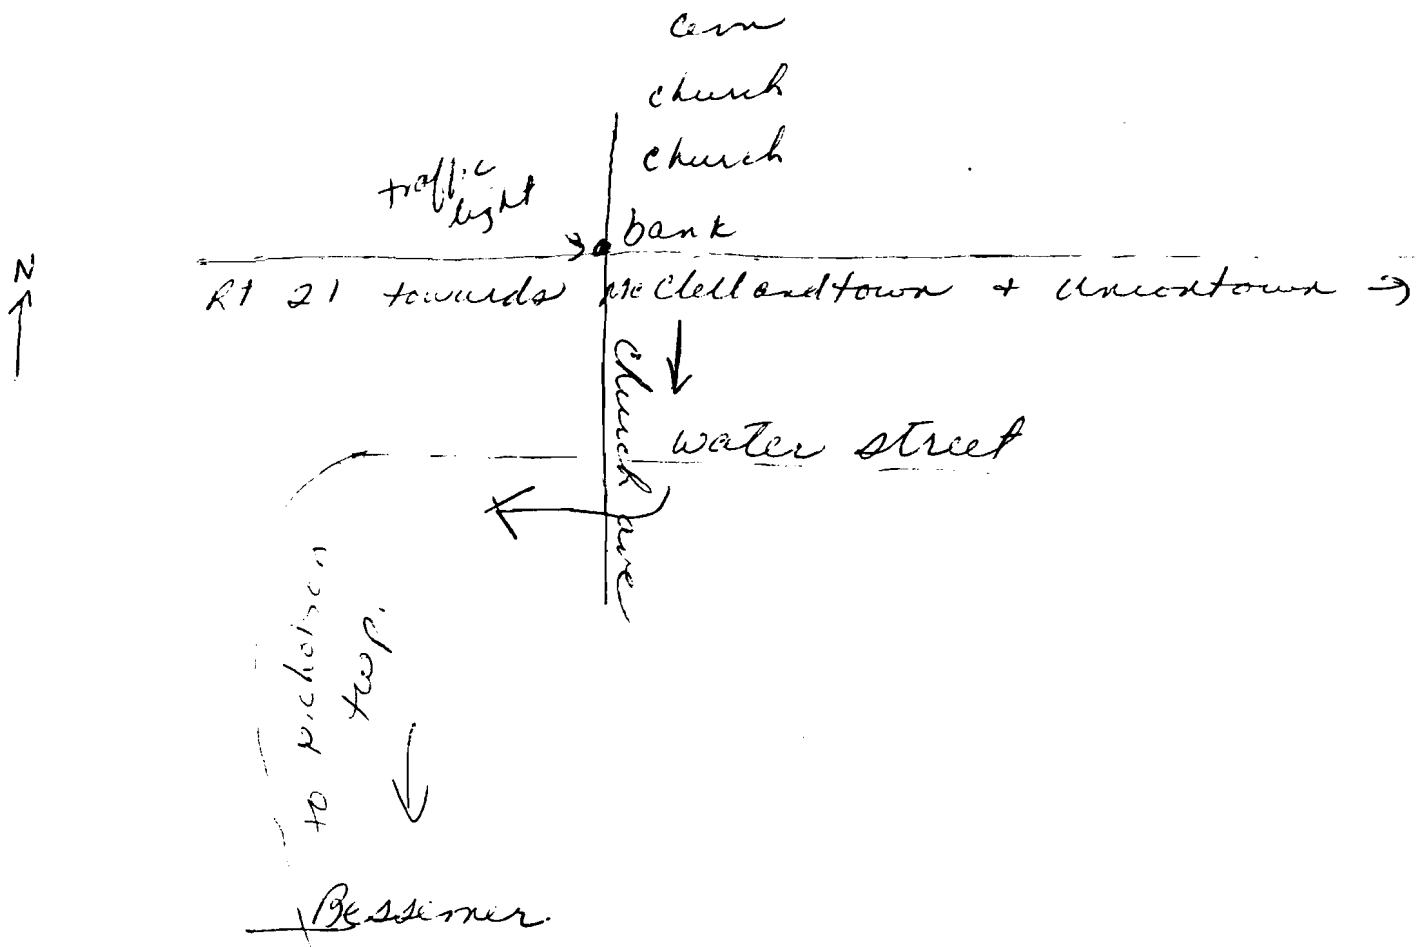 Cem
church
church
traffic
light
bank
N
Rt 21 towards McClellandtown + Uniontown
church ave
water street
to Nicholson
twp.
Bessemer.